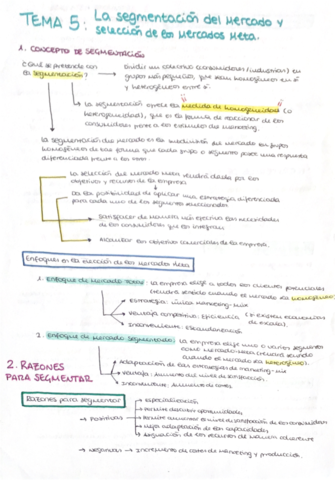 TEMA 5: La segmentación del mercado y
selección de los mercados meta.
1. CONCEPTO DE SEGMENTACIÓN
¿Qué se pretende con
la segmentación?
dividir un entorno (consumidores/industrial) en
grupos más pequeños, que sean homogéneos en sí
y heterogéneos entre sí.
La segmentación aplica la medida de homogeneidad (o
heterogeneidad), que es la forma de reaccionar de los
consumidores frente a los estímulos del marketing.
La segmentación del mercado es la división del mercado en grupos
homogéneos de tal forma que cada grupo o segmento posee una respuesta
diferenciada frente a los
La selección del mercado meta vendrá dada por los
objetivos y recursos de la empresa
Da la posibilidad de aplicar una estrategia diferenciada
para cada uno de los segmentos seleccionados
Satisfacer de manera más efectiva las necesidades
de los consumidores que los integran
Alcanzar los objetivos comerciales de la empresa.
Enfoques en la elección de los mercados meta
1. Enfoque de mercado total: La empresa elige a todos los clientes potenciales
(tendrá sentido cuando el mercado sea homogéneo)
Estrategia: único marketing-mix
Ventaja competitiva: Eficiencia (si existen economías
de escala).
Inconveniente: Estandarización
2. Enfoque de mercado segmentado: La empresa elige uno o varios segmentos
como mercado-meta (tendrá sentido
cuando el mercado sea heterogéneo).
Adaptación de las estrategias de marketing-mix
Ventaja: Aumento del nivel de satisfacción.
Inconveniente: Aumento de costes
2. RAZONES
PARA SEGMENTAR
Razones para segmentar
Positivas
Especialización
Permite descubrir oportunidades
Permite aumentar el nivel de satisfacción de los consumidores
Mejor adaptación de las capacidades
Asignación de los recursos de manera coherente
Negativas → Incremento de costes de marketing y producción.